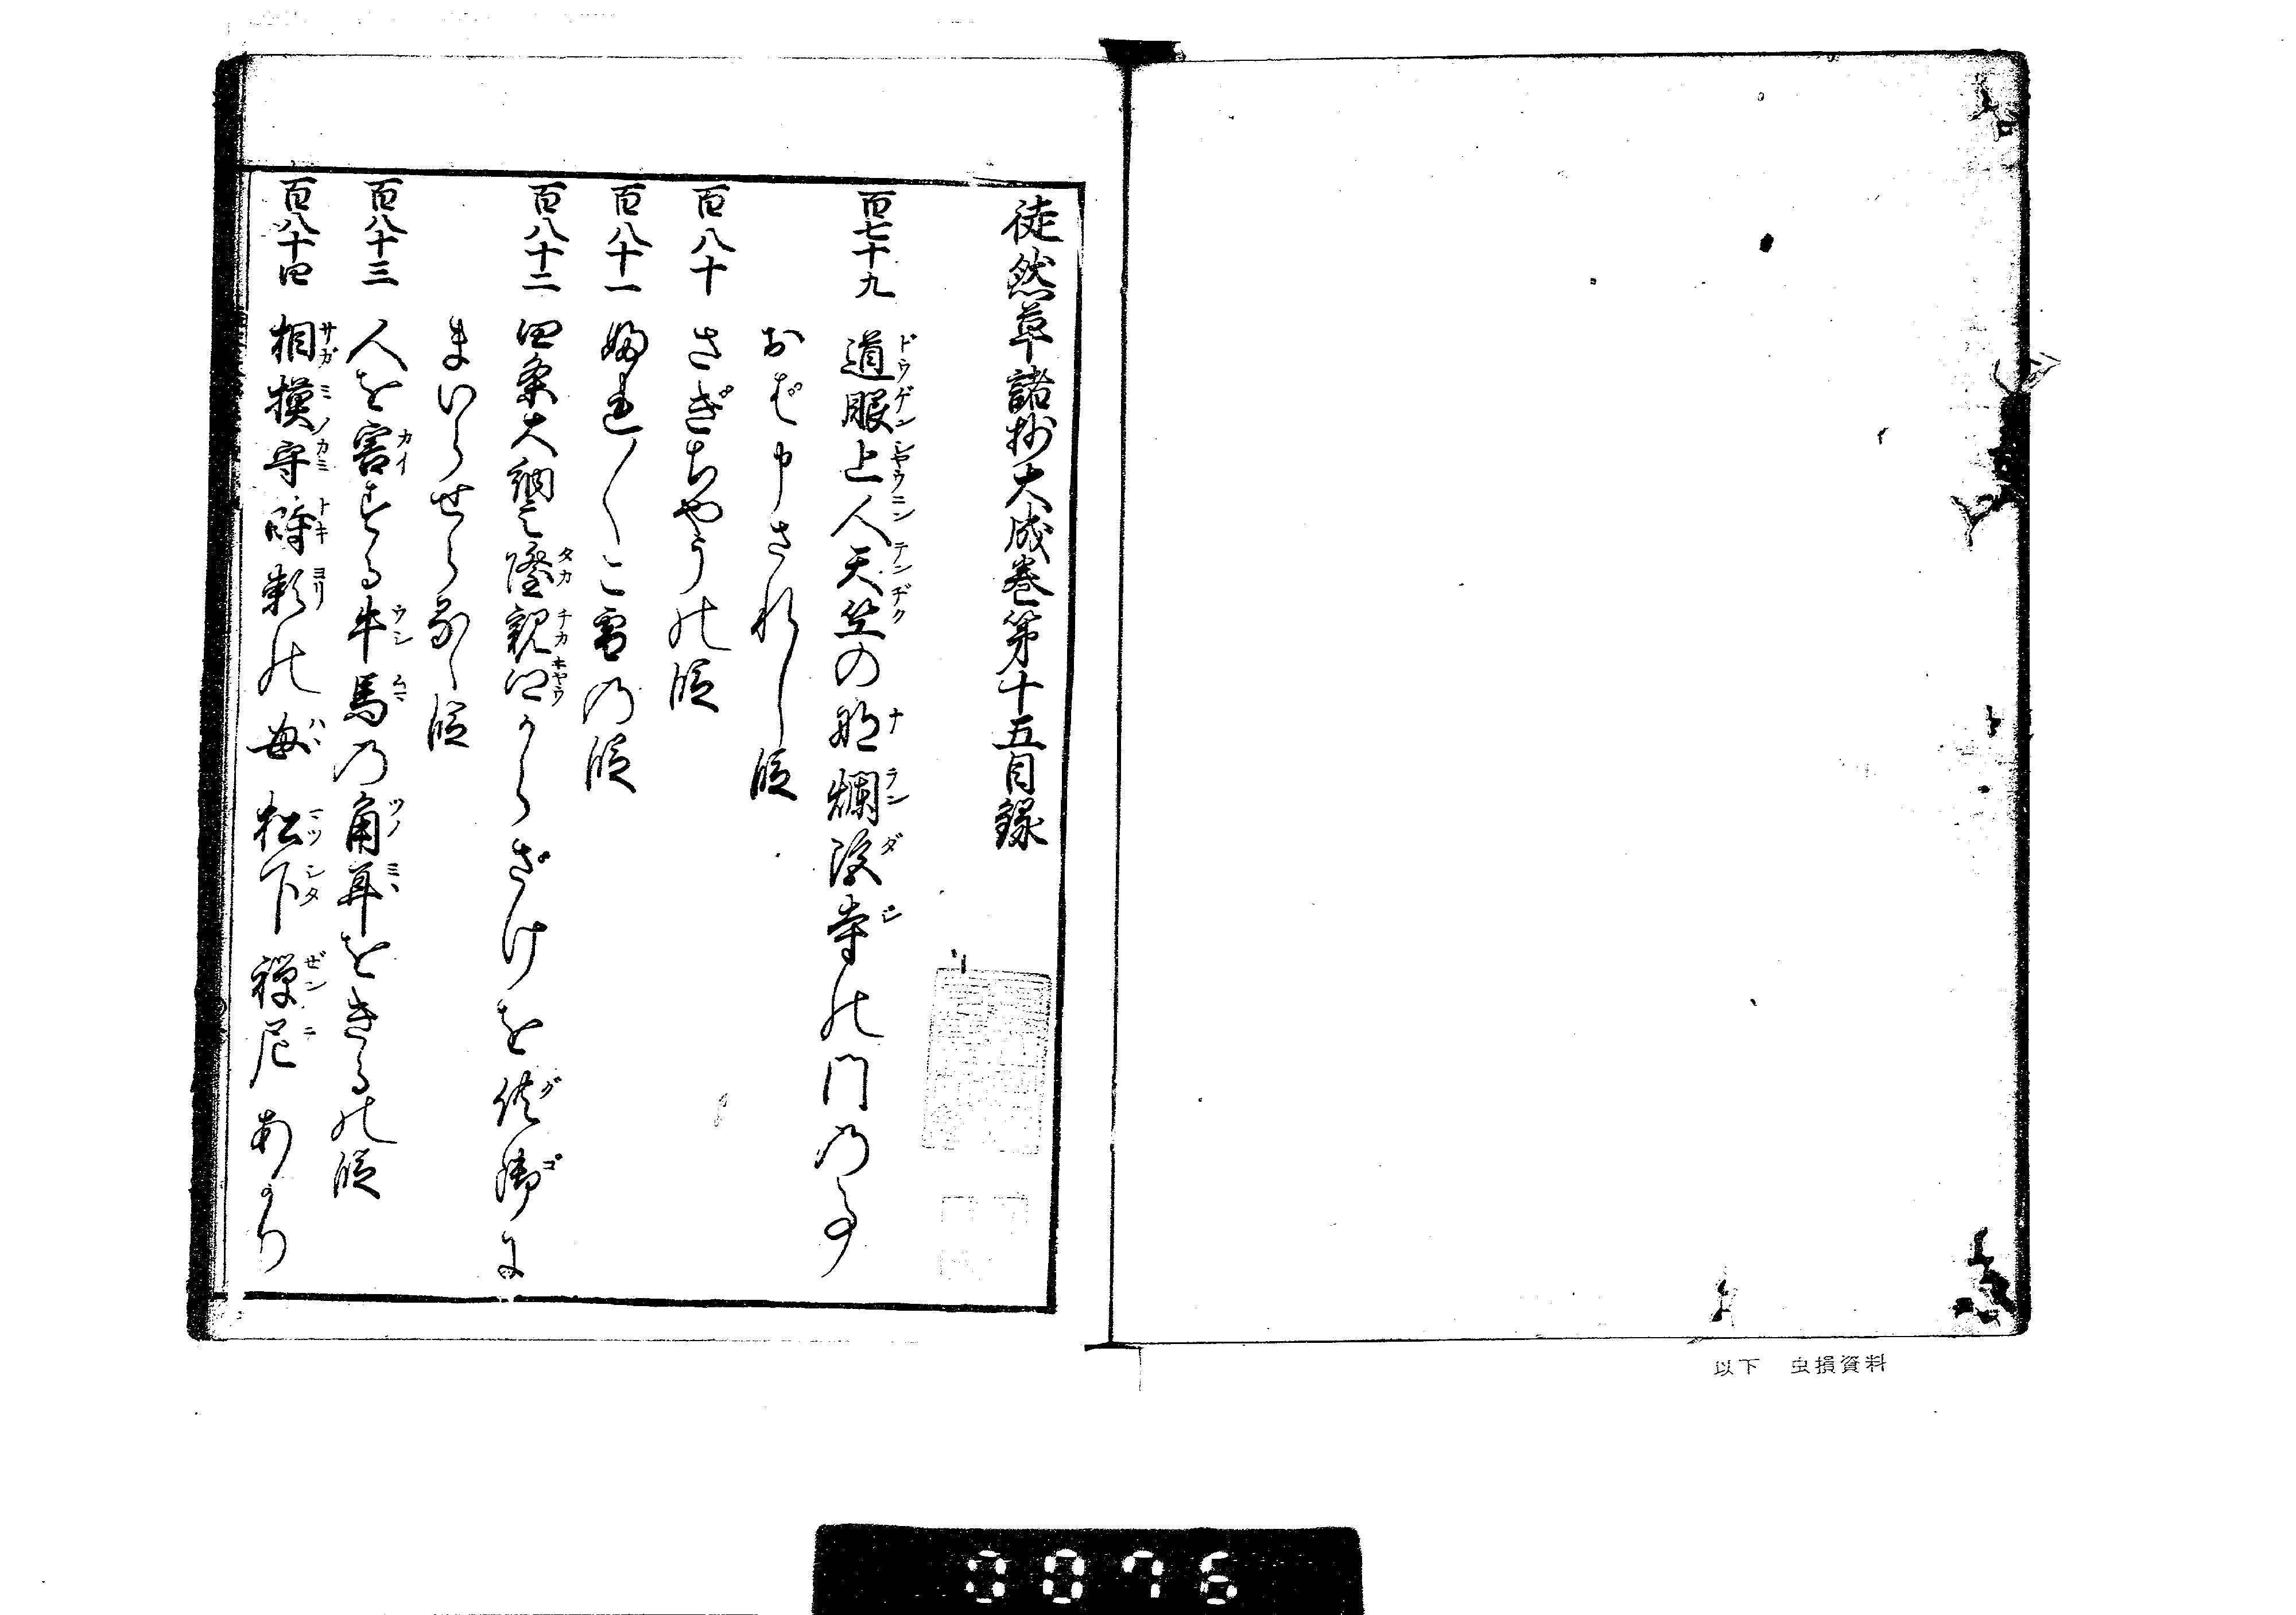 徒然草諸抄大成巻第十五目録
百七十九 道眼上人天竺の那爛陀寺の門の事
おぼ申されし段
百八十 さぎちやうの段
百八十一 ふれ〳〵こ雪の段
百八十二 四条大納言隆親卿からざけを供御に
まいらせらるゝ段
百八十三 人を害する牛馬の角耳をきるの段
百八十四 相摸守時頼の母 松下禅尼あかり
以下 虫損資料
0076